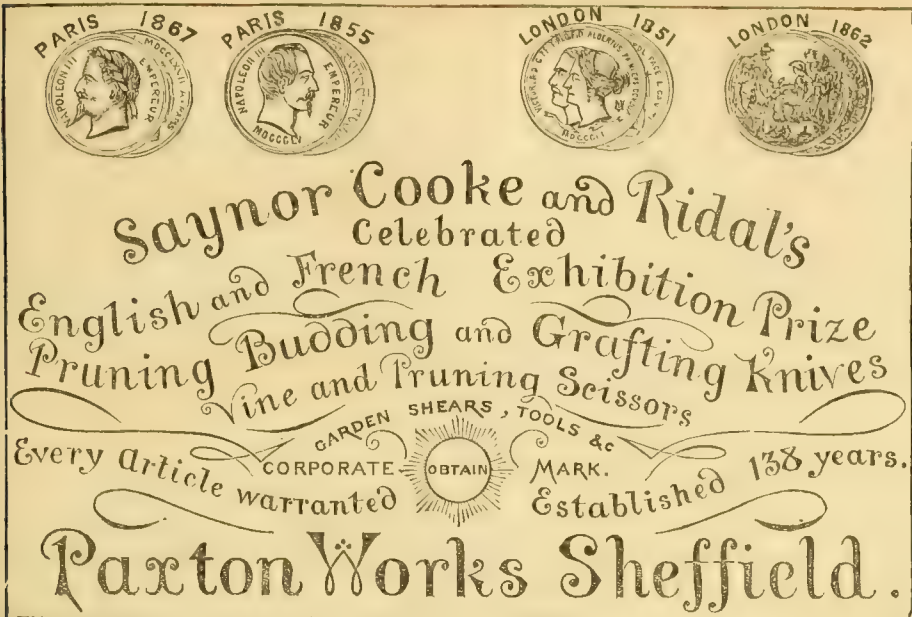 PARIS 1867
PARIS 1855
LONDON 1851
LONDON 1862
NAPOLEON III EMPEREUR
NAPOLEON III EMPEREUR
Saynor Cooke and Ridal's
Celebrated
English and French Exhibition Prize
Pruning Budding and Grafting Knives
Vine and Pruning Scissors
GARDEN SHEARS, TOOLS &c
CORPORATE OBTAIN MARK.
Every Article warranted
Established 138 years.
Paxton Works Sheffield.